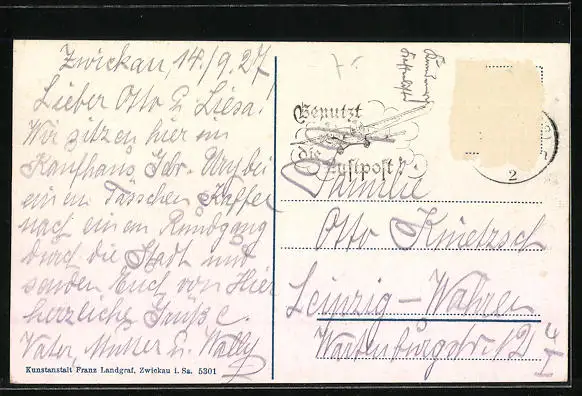 Zwickau, 14./9.27
Lieber Otto u. Liesa!
Wir sitzen hier im
Kaufhaus Gbr. Ury bei
einem Tässchen Kaffee
nach einem Rundgang
durch die Stadt und
senden Euch von Hier
herzliche Grüße.
Vater, Mutter u. Wally
Kunstanstalt Franz Landgraf, Zwickau i. Sa. 5301
Benutzt
die Luftpost!
2
Familie
Otto Kinetzsch
Leipzig-Wahren
Wartenburgstr. 12